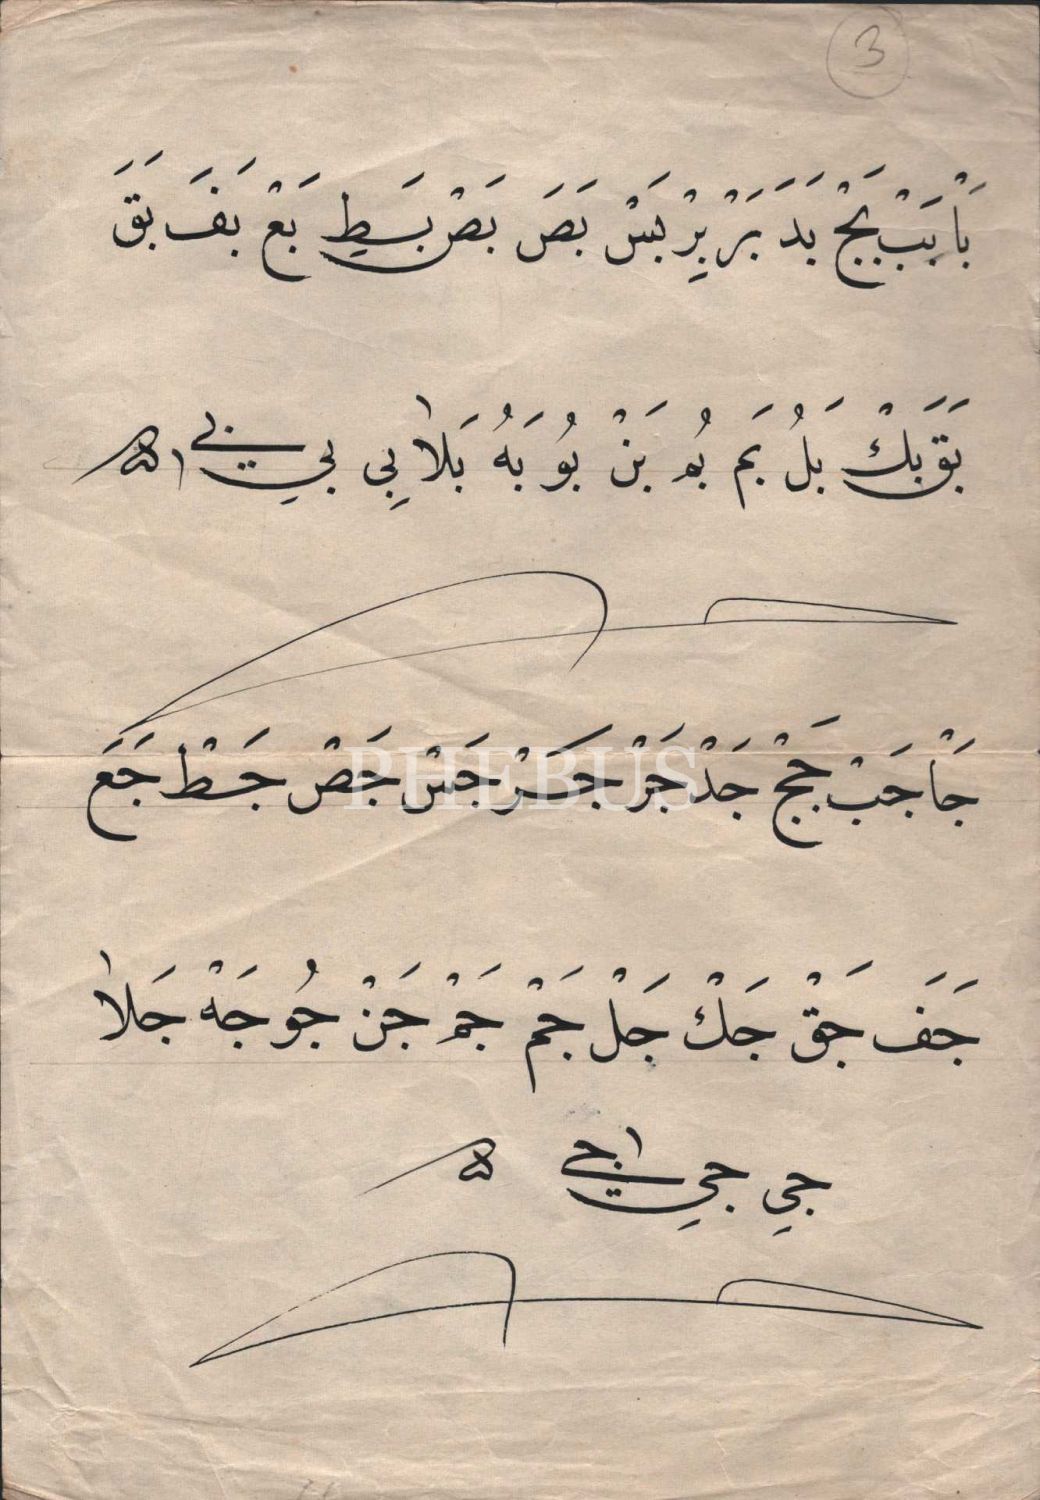 3
بَاْ بَبْ بَجْ بَدَ بَرْ بِرْ بَسْ بَصَ بَصْ بَسَطِ بَعْ بَفَ بَقَ
بَقَ بَكْ بَلُ بَم بُم بَنْ بُو بَهُ بَلا بِي بِي
PHEBUS
جَاْ جَبْ جَجْ جَدْ جَرْ جَسَرْ جَسْ جَصْ جَطْ جَعَ
جَفَ جَقْ جَكْ جَلْ جَمْ جَمْ جَنْ جُو جَهْ جَلا
جِي جِي